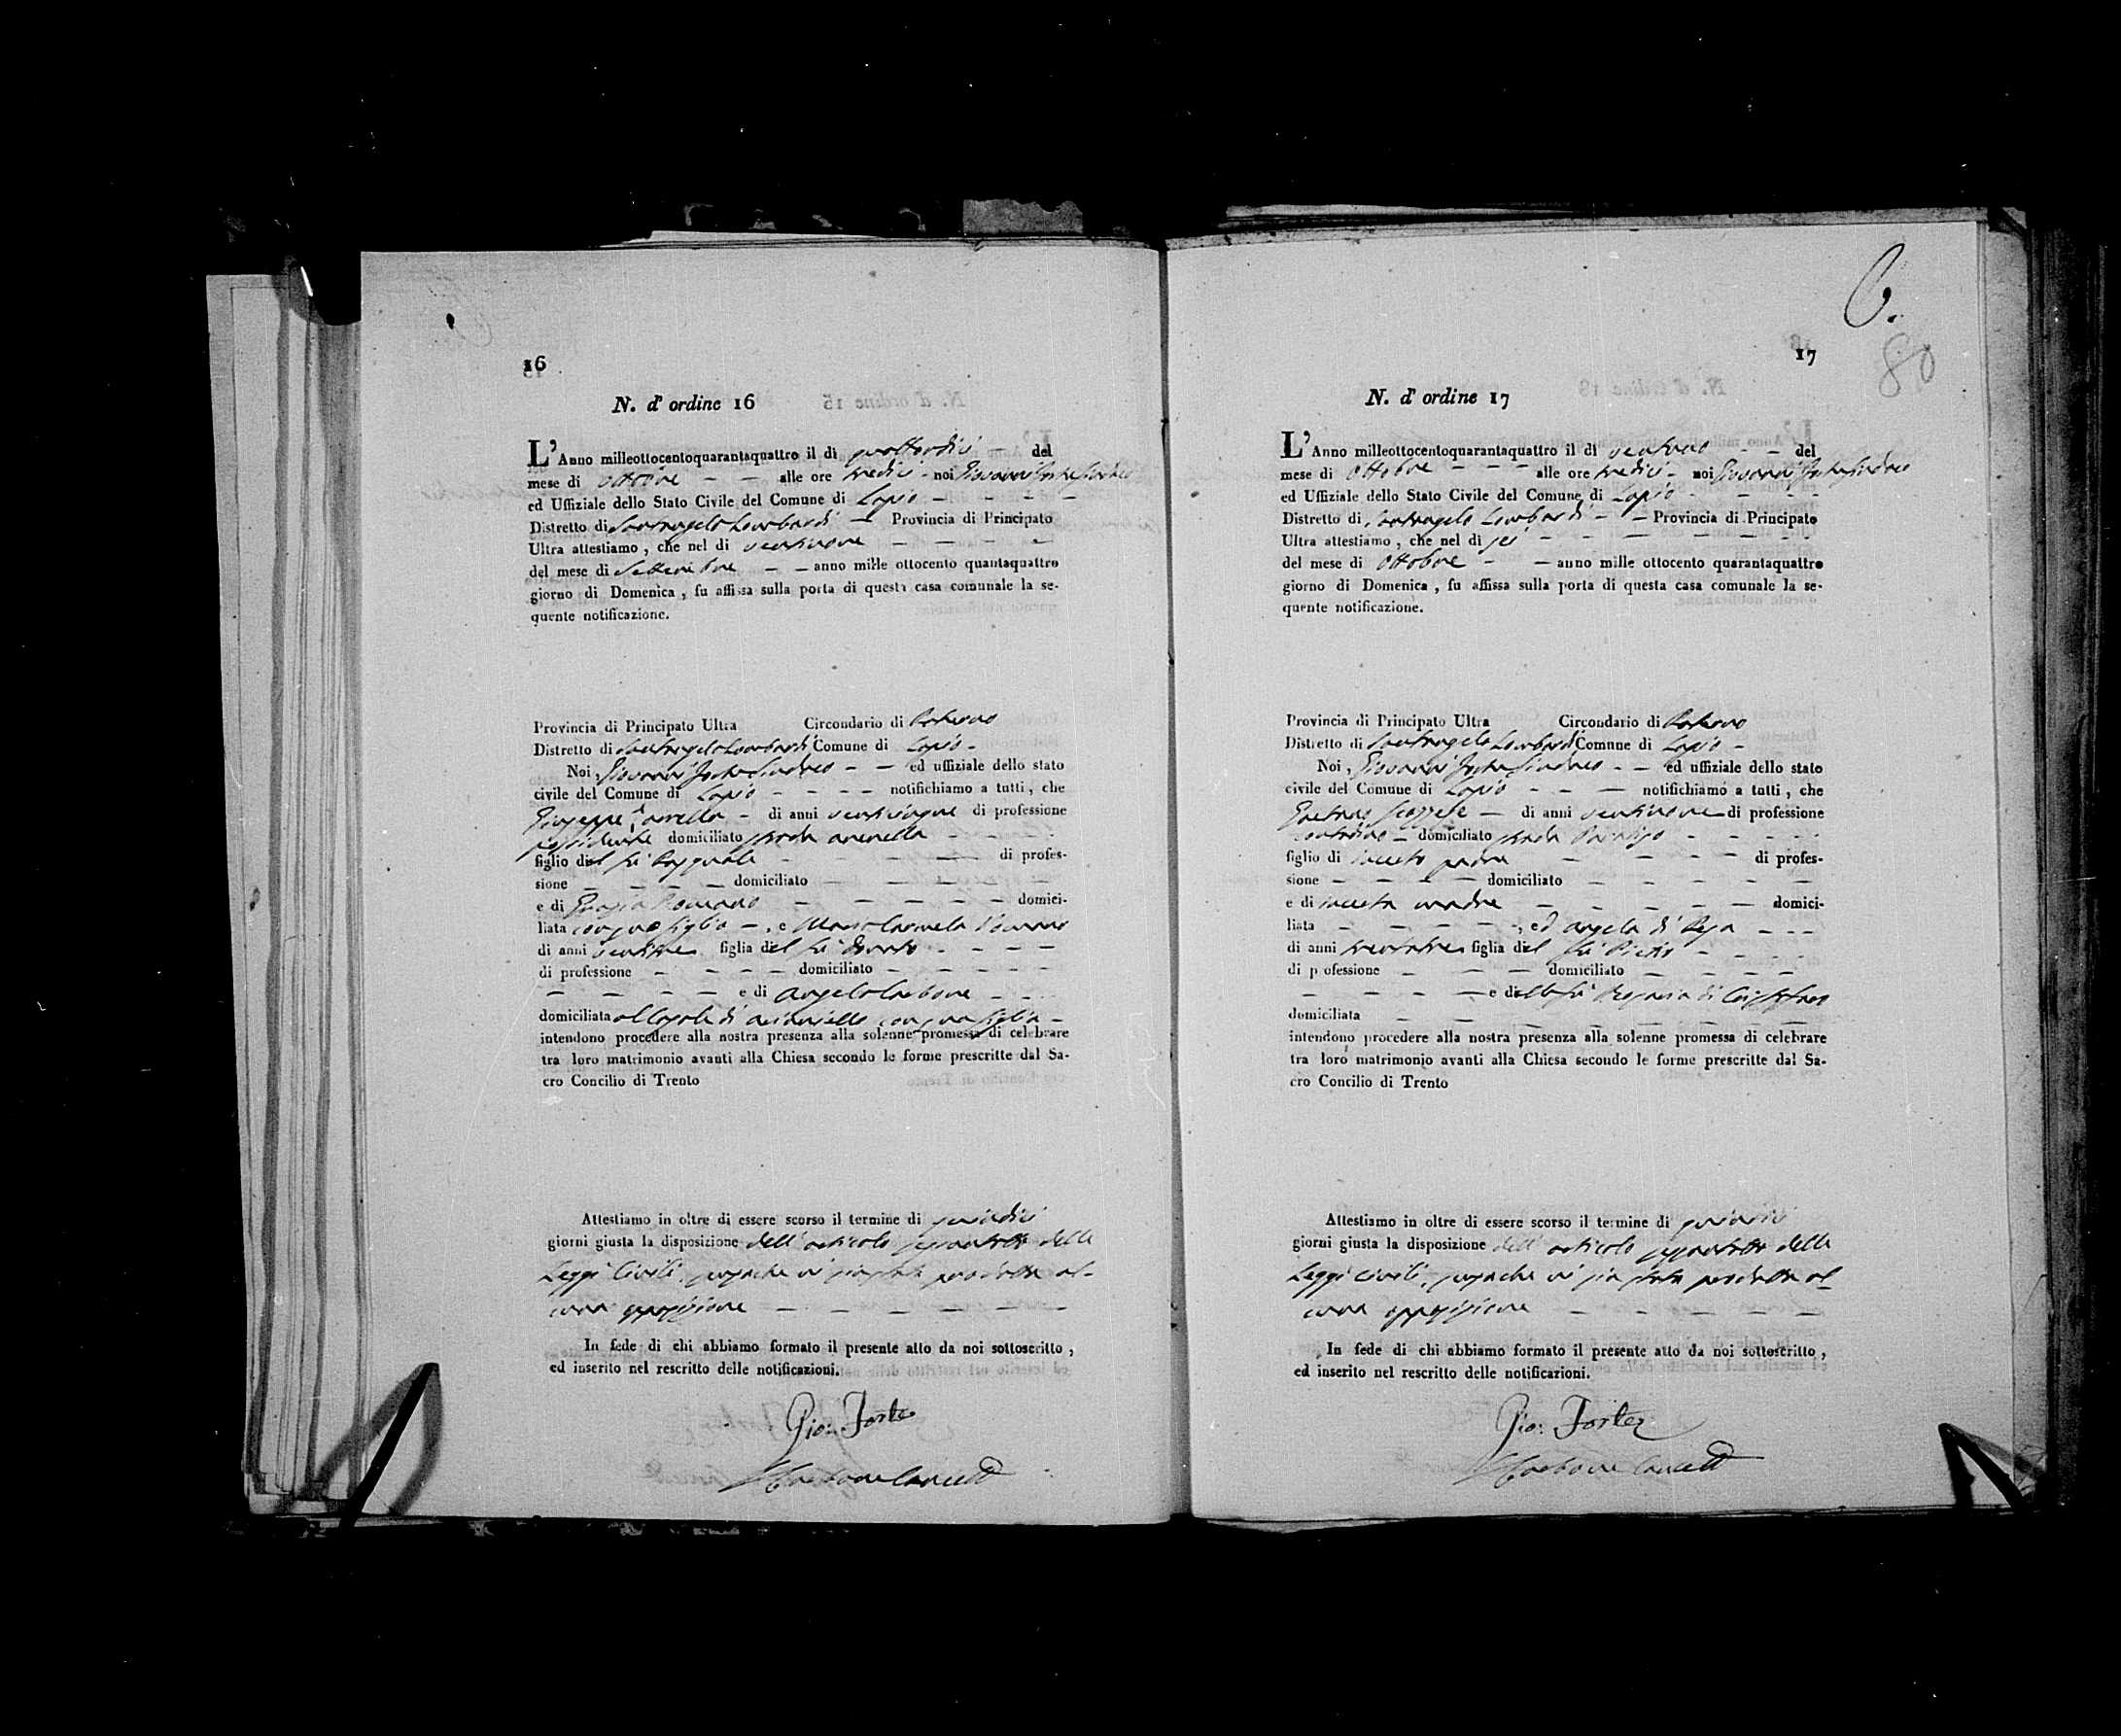 16
N. d' ordine 16
L'Anno milleottocentoquarantaquattro il dì quattordici del
mese di ottobre alle ore tredici noi Giovanni Forte Sindaco
ed Uffiziale dello Stato Civile del Comune di Lapio
Distretto di Santangelo Lombardi Provincia di Principato
Ultra attestiamo, che nel di ventinove
del mese di Settembre anno mille ottocento quantaquattro
giorno di Domenica, fu affissa sulla porta di questa casa comunale la se-
quente notificazione.
Provincia di Principato Ultra Circondario di
Distretto di Santangelo Lombardi Comune di Lapio
Noi, Giovanni Forte Sindaco ed uffiziale dello stato
civile del Comune di Lapio notifichiamo a tutti, che
Giuseppe di anni venticinque di professione
possidente domiciliato strada
figlio del fù Pasquale di profes-
sione domiciliato
e di Romano domici-
liata con suo figlio, e Maria Carmela Romano
di anni ventitre figlia del fù Donato
di professione domiciliato
e di Angela Carbone
domiciliata al Casale di con sua figlia
intendono procedere alla nostra presenza alla solenne promessa di celebrare
tra loro matrimonio avanti alla Chiesa secondo le forme prescritte dal Sa-
cro Concilio di Trento
Attestiamo in oltre di essere scorso il termine di quindici
giorni giusta la disposizione dell' articolo sessantotto delle
Leggi Civili, senzache vi sia stata prodotta al-
cuna opposizione
In fede di chi abbiamo formato il presente atto da noi sottoscritto,
ed inserito nel rescritto delle notificazioni.
Gio: Forte
Carbone Cancell
6.
80
17
N. d' ordine 17
L'Anno milleottocentoquarantaquattro il dì ventuno del
mese di Ottobre alle ore tredici noi Giovanni Forte Sindaco
ed Uffiziale dello Stato Civile del Comune di Lapio
Distretto di Santangelo Lombardi Provincia di Principato
Ultra attestiamo, che nel di sei
del mese di Ottobre anno mille ottocento quarantaquattro
giorno di Domenica, fu affissa sulla porta di questa casa comunale la se-
quente notificazione.
Provincia di Principato Ultra Circondario di
Distretto di Santangelo Lombardi Comune di Lapio
Noi, Giovanni Forte Sindaco ed uffiziale dello stato
civile del Comune di Lapio notifichiamo a tutti, che
Gaetano Scozzese di anni ventinove di professione
contadino domiciliato strada
figlio di incerto padre di profes-
sione domiciliato
e di incerta madre domici-
liata, ed Angela di
di anni trentatre figlia del fù Pietro
di professione domiciliato
e della fù di Cristofaro
domiciliata
intendono procedere alla nostra presenza alla solenne promessa di celebrare
tra loro matrimonio avanti alla Chiesa secondo le forme prescritte dal Sa-
cro Concilio di Trento
Attestiamo in oltre di essere scorso il termine di quindici
giorni giusta la disposizione dell' articolo sessantotto delle
Leggi Civili, senzache vi sia stata prodotta al-
cuna opposizione
In fede di chi abbiamo formato il presente atto da noi sottoscritto,
ed inserito nel rescritto delle notificazioni.
Gio: Forte
Carbone Cancell